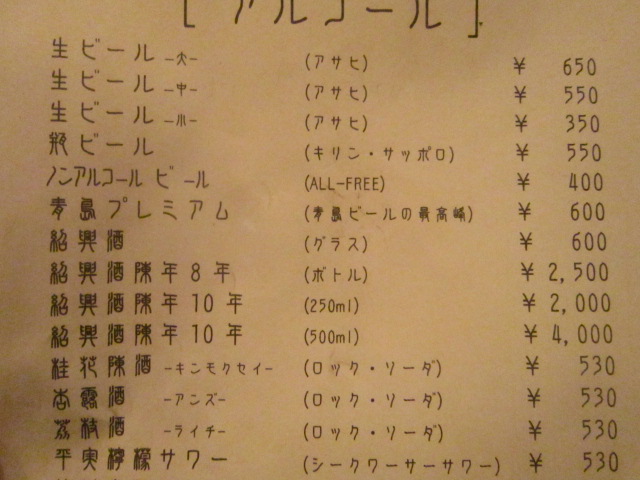 [ アルコール ]
生ビール –大– (アサヒ) ¥ 650
生ビール –中– (アサヒ) ¥ 550
生ビール –小– (アサヒ) ¥ 350
瓶ビール (キリン・サッポロ) ¥ 550
ノンアルコール ビール (ALL-FREE) ¥ 400
青島プレミアム (青島ビールの最高峰) ¥ 600
紹興酒 (グラス) ¥ 600
紹興酒陳年8年 (ボトル) ¥ 2,500
紹興酒陳年10年 (250ml) ¥ 2,000
紹興酒陳年10年 (500ml) ¥ 4,000
桂花陳酒 –キンモクセイ– (ロック・ソーダ) ¥ 530
杏露酒 –アンズ– (ロック・ソーダ) ¥ 530
茘枝酒 –ライチ– (ロック・ソーダ) ¥ 530
平実檸檬サワー (シークワーサーサワー) ¥ 530